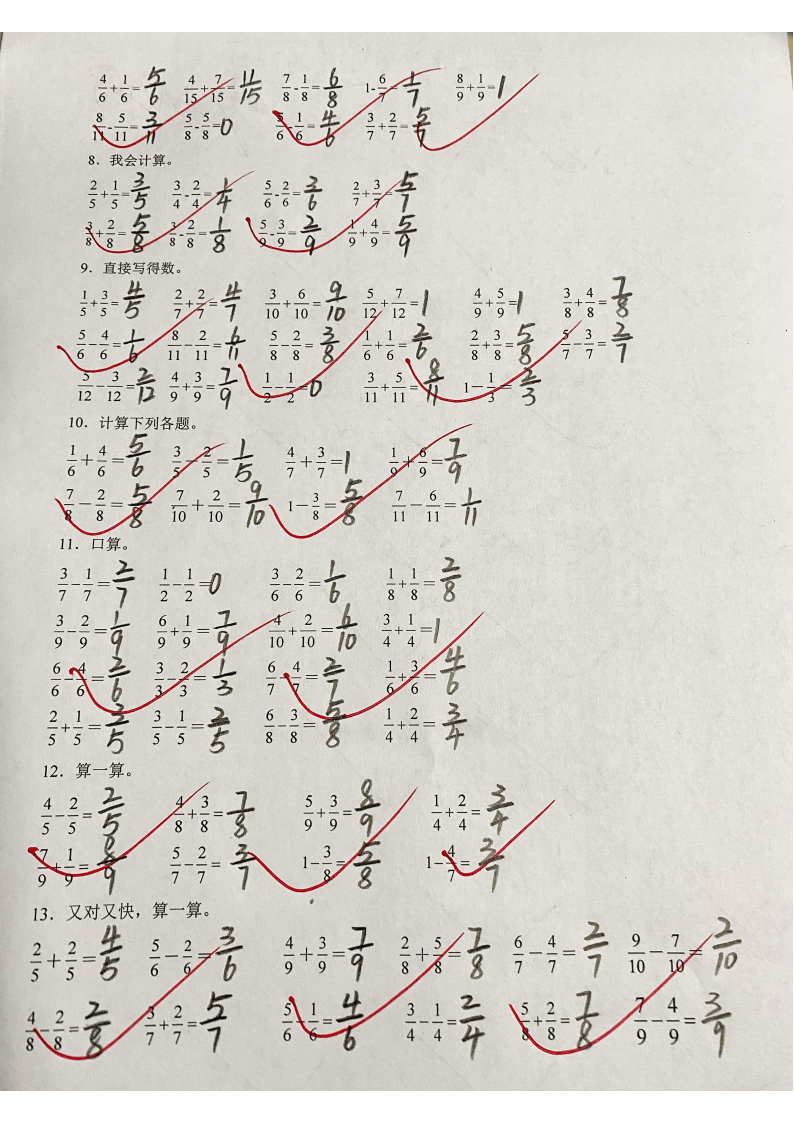 4/6+1/6=5/6 4/15+7/15=11/15 7/8-1/8=6/8 1-6/7=1/7 8/9+1/9=1
8/11-5/11=3/11 5/8-5/8=0 5/6-1/6=4/6 3/7+2/7=5/7
8．我会计算。
2/5+1/5=3/5 3/4-2/4=1/4 5/6-2/6=3/6 2/7+3/7=5/7
3/8+2/8=5/8 3/8-2/8=1/8 5/9-3/9=2/9 1/9+4/9=5/9
9．直接写得数。
1/5+3/5=4/5 2/7+2/7=4/7 3/10+6/10=9/10 5/12+7/12=1 4/9+5/9=1 3/8+4/8=7/8
5/6-4/6=1/6 8/11-2/11=6/11 5/8-2/8=3/8 1/6+1/6=2/6 2/8+3/8=5/8 5/7-3/7=2/7
5/12-3/12=2/12 4/9+3/9=7/9 1/2-1/2=0 3/11+5/11=8/11 1-1/3=2/3
10．计算下列各题。
1/6+4/6=5/6 3/5-2/5=1/5 4/7+3/7=1 1/9+6/9=7/9
7/8-2/8=5/8 7/10+2/10=9/10 1-3/8=5/8 7/11-6/11=1/11
11．口算。
3/7-1/7=2/7 1/2-1/2=0 3/6-2/6=1/6 1/8+1/8=2/8
3/9-2/9=1/9 6/9+1/9=7/9 4/10+2/10=6/10 3/4+1/4=1
6/6-4/6=2/6 3/3-2/3=1/3 6/7-4/7=2/7 1/6+3/6=4/6
2/5+1/5=3/5 3/5-1/5=2/5 6/8-3/8=5/8 1/4+2/4=3/4
12．算一算。
4/5-2/5=2/5 4/8+3/8=7/8 5/9+3/9=8/9 1/4+2/4=3/4
7/9+1/9=8/9 5/7-2/7=3/7 1-3/8=5/8 1-4/7=3/7
13．又对又快，算一算。
2/5+2/5=4/5 5/6-2/6=3/6 4/9+3/9=7/9 2/8+5/8=7/8 6/7-4/7=2/7 9/10-7/10=2/10
4/8-2/8=2/8 3/7+2/7=5/7 5/6-1/6=4/6 3/4-1/4=2/4 5/8+2/8=7/8 7/9-4/9=3/9